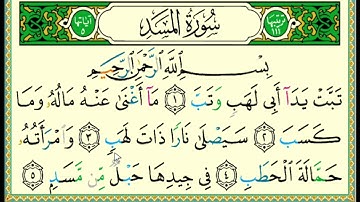 ترتيبها ١١١
سُورَةُ المَسَدِ
آياتها ٥
بِسْمِ ٱللَّهِ ٱلرَّحْمَٰنِ ٱلرَّحِيمِ
تَبَّتْ يَدَآ أَبِى لَهَبٍ وَتَبَّ ١ مَآ أَغْنَىٰ عَنْهُ مَالُهُۥ وَمَا
كَسَبَ ٢ سَيَصْلَىٰ نَارًا ذَاتَ لَهَبٍ ٣ وَٱمْرَأَتُهُۥ
حَمَّالَةَ ٱلْحَطَبِ ٤ فِى جِيدِهَا حَبْلٌ مِّن مَّسَدٍۭ ٥